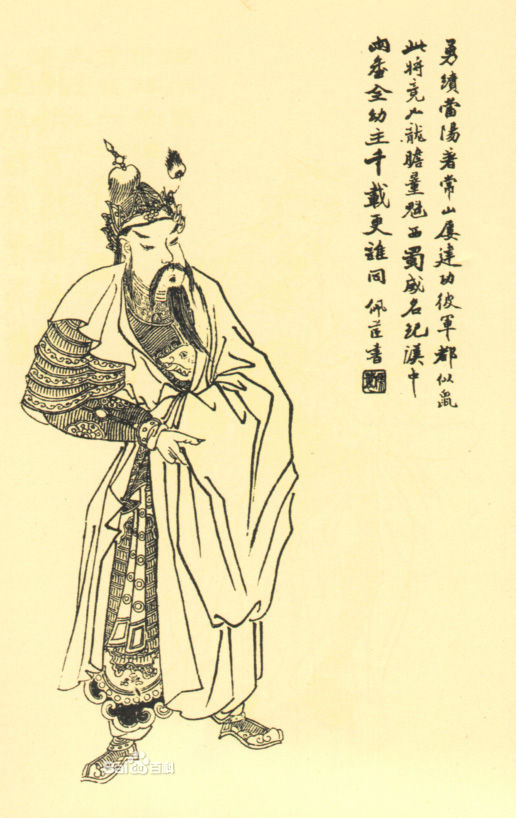 勇績當陽著常山屢建功彼軍都似鼠
此將竟如龍膽量魁西蜀威名紀漢中
兩番全幼主千載更誰同 佩芷書
Baidu百科